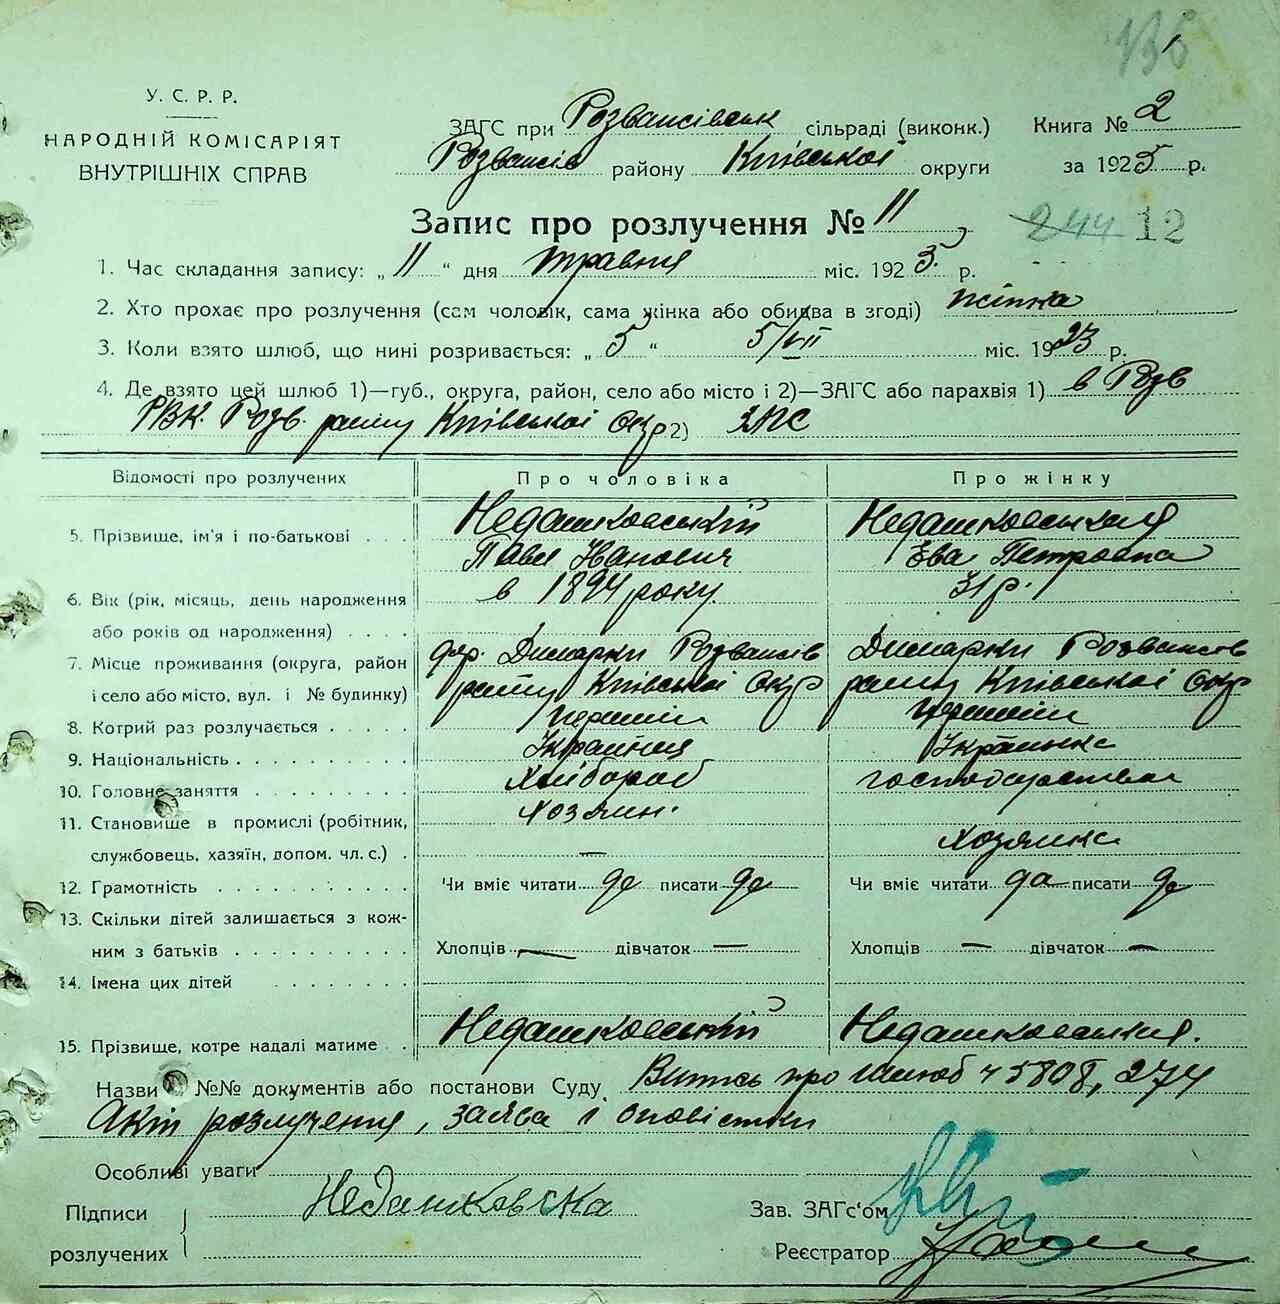 У. С. Р. Р.
НАРОДНІЙ КОМІСАРІЯТ
ВНУТРІШНІХ СПРАВ
ЗАГС при Розважівськ сільраді (виконк.) Книга № 2
Розважів району Київської округи за 1925 р.
Запис про розлучення № 11
244 12
1. Час складання запису: „ 11 “ дня травня міс. 1925 р.
2. Хто прохає про розлучення (сам чоловік, сама жінка або обидва в згоді) жінка
3. Коли взято шлюб, що нині розривається: „ 5 “ 5/VII міс. 1923 р.
4. Де взято цей шлюб 1)—губ., округа, район, село або місто і 2)—ЗАГС або парахвія 1) в Розв
РВК. Розв. району Київської Окр 2) ЗАГС
Відомості про розлучених Про чоловіка Про жінку
5. Прізвище, ім'я і по-батькові . . . Недашковський Недашковская
Павел Иванович Ева Петровна
6. Вік (рік, місяць, день народження в 1894 року. 31 р.
або років од народження) . . . .
7. Місце проживання (округа, район Димарки Розважів Димарки Розважів
і село або місто, вул. і № будинку) району Київської Окр району Київської Окр
8. Котрий раз розлучається . . . . . перший перший
9. Національність . . . . . . . . . . Українец Українка
10. Головне заняття . . . . . . . . . Хлібороб господарства
11. Становище в промислі (робітник, Хозяин.
службовець, хазяїн, допом. чл. с.) . — Хозяйка
12. Грамотність . . . . . . . . . . Чи вміє читати да писати да Чи вміє читати да писати да
13. Скільки дітей залишається з кож-
ним з батьків . . . . . . . . . . Хлопців — дівчаток — Хлопців — дівчаток —
14. Імена цих дітей . . . . . . . .
15. Прізвище, котре надалі матиме . . Недашковський Недашковская.
Назви і №№ документів або постанови Суду Витсь про шлюб ч 5808, 274
Акт розлучення, заява і оповістки
Особливі уваги
Підписи Недашковска Зав. ЗАГс‘ом
розлучених Реєстратор